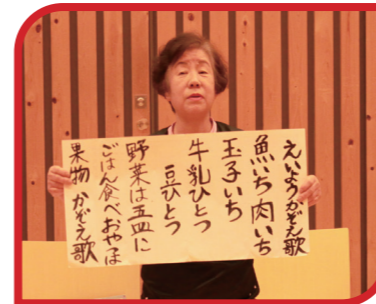 えいようかぞえ歌
魚いち肉いち
玉子いち
牛乳ひとつ
豆ひとつ
野菜は五皿に
ごはん食べおやつは
果物 かぞえ歌